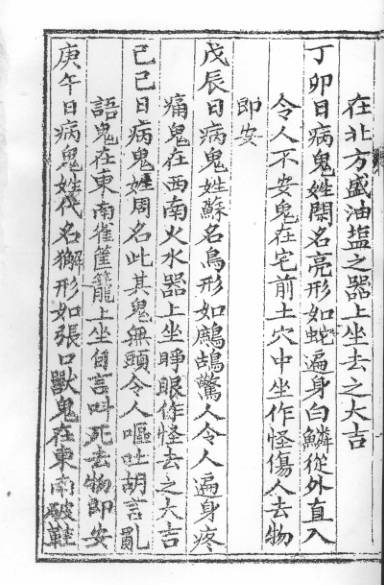 在北方盛油塩之器上坐去之大吉
丁卯日病鬼姓閻名亮形如蛇遍身白鱗從外直入
令人不安鬼在宅前土穴中坐作怪傷人去物
即安
戊辰日病鬼姓蘇名鳥形如鷓鴣驚人令人遍身疼
痛鬼在西南火水器上坐睜眼作怪去之大吉
己巳日病鬼姓周名此其鬼無頭令人嘔吐胡言乱
語鬼在東南雀籠上坐自言叫死去物即安
庚午日病鬼姓代名獬形如張口獸鬼在東南破鞋